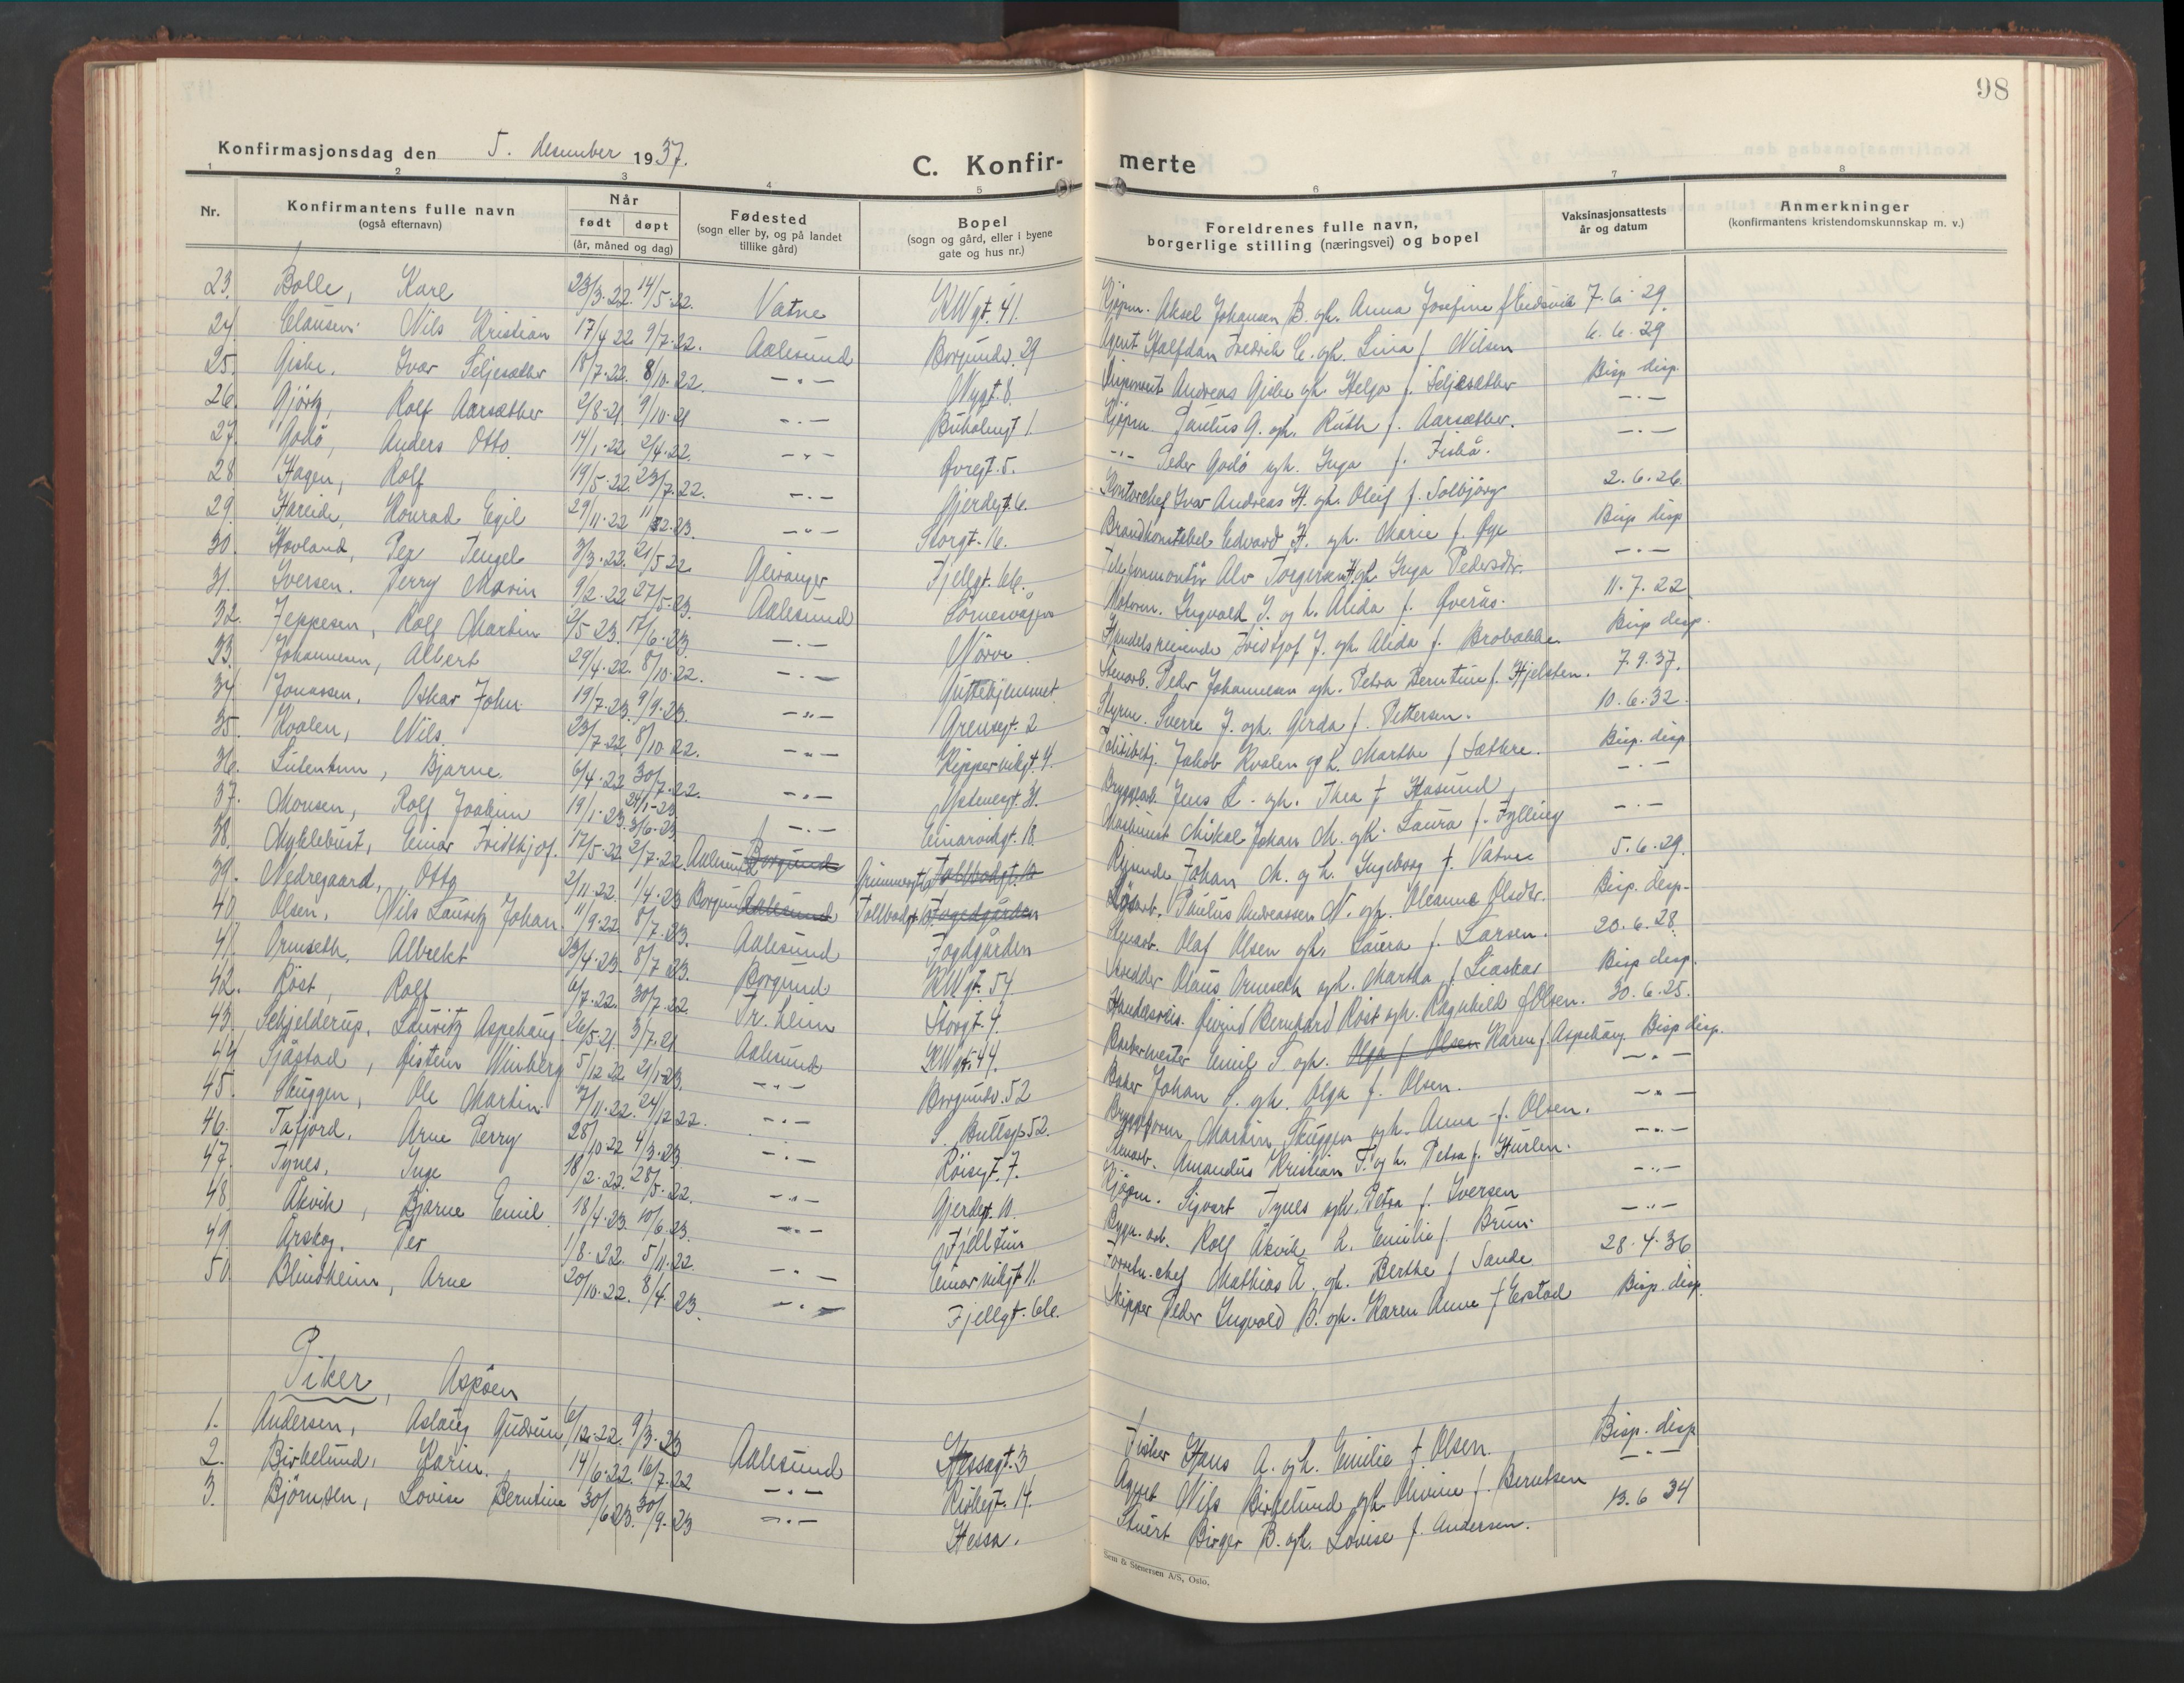 98
Konfirmasjonsdag den 5. desember 1937.
C. Konfir- merte
1 2 3 4 5 6 7 8
Nr. Konfirmantens fulle navn (også efternavn) Når født døpt (år, måned og dag) Fødested (sogn eller by, og på landet tillike gård) Bopel (sogn og gård, eller i byene gate og hus nr.) Foreldrenes fulle navn, borgerlige stilling (næringsvei) og bopel Vaksinasjonsattests år og datum Anmerkninger (konfirmantens kristendomskunnskap m. v.)
23. Bolle, Kare 23/3.22. 14/5.22. Vatne KWgt. 41. Kjøpm. Aksel Johansen B. gh. Anna Josefine f. Eidsvik 7.6.29.
24. Clausen. Nils Kristian 17/4 22 9/7.22. Aalesund Borgundv. 29 Agent Halfdan Fredrik C. ogh. Lina f. Nilsen 6.6.29
25. Giske, Ivar Seljesæther 18/7.22. 8/10.22. -"- Nygt. 8. Andreas Giske gh. Helga f. Seljesæther Bisp. disp.
26. Gjörtz, Rolf Aarsæther 2/8-21 9/10-21 -"- Buholmgt 1. Kjøpm. Paulus G. ogh. Ruth f. Aarsæther. -"-
27. Godö, Anders Otto. 14/1.22. 2/4.22. -"- Øvregt. 5. -"- Peder Godö ogh. Inga f. Fiskå. -"-
28 Hagen, Rolf 19/5.22. 23/7.22. -"- Gjerdegt. 6. Kontorchef Ivar Andreas H. gh. Oleif f. Solbjörg 2.6.26.
29. Hareide, Konrad Egil 29/11.22 11/2.23. -"- Storgt. 16. Brandkonstabel Edvard H. gh. Marie f. Øye Bisp disp
30. Hovland, Per Tengel 3/3.22. 21/5 22 Geiranger Fjellgt. 66. Telefonmontör Alv Torgersen H. gh. Inga Pedersdtr. -"-
31. Iversen. Perry Marin 9/2.22 27/5.23. Aalesund Sörnesvågen Motorm. Ingvald I. og h. Alida f. Øveraas. 11.7.22
32. Jeppesen, Rolf Martin 2/5 23. 17/6.23. -"- Nörve Handelsreisende Fridtjof J. gh. Alida f. Brobakke Bisp disp.
33. Johannesen, Albert 29/4.22. 8/10.22. -"- Guttehjemmet Stenarb. Peder Johannesen ogh. Petra Berntine f. Hjelsten. 7.9.37.
34 Jonassen, Oskar John 19/7.23. 9/9.23. -"- Grensegt. 2 Styrm. Sverre J. ogh. Gerda f. Pettersen. 10.6.32.
35. Kvalen, Nils. 23/7.22 8/10.22. -"- Kippervikgt. 4. Politibetj. Jakob Kvalen og h. Marthe f. Sætre. Bisp. disp.
36. Listentun, Bjarne 6/4.22 30/7.22. -"- Jens L. gh. Thea f. Hasund -"-
37. Monsen, Rolf Joakim 19/1.23. 3/6.23 -"- Einarvikgt. 18. Maskinist Mikal Johan M. gh. Laura f. Fylling -"-
38. Myklebust, Einar Fridthjof. 17/5.22 2/7.22. Aalesund Borgund Tollbodgt. 10 Reisende Johan M. og h. Ingeborg f. Vatne 5.6.29.
39. Nedregaard, Otto 2/11.22. 1/4.23 Borgund Aalesund Tollbodgt. 10. Fogedgården Lösarb. Paulus Andreassen N. ogh. Oleanne Olsdtr. Bisp. disp-
40 Olsen, Nils Lauritz Johan 11/9.22. 8/7.23. Aalesund Fogdgården Stenarb. Olaf Olsen ogh. Laura f. Larsen. 20.6.28.
41. Ormseth, Albrekt 23/4.23. 8/7 23. Borgund KWgt. 54 Skredder Olaus Ormseth ogh. Martha f. Liaskar Bisp disp.
42. Röst, Rolf 6/7.22. 30/7.22 Tr.heim Storgt. 4. Handelsreis. Øivind Bernhard Röst ogh. Ragnhild f. Olsen. 30.6.25.
43. Schjelderup, Lauritz Aspehaug 26/5.21. 3/7.21 Aalesund KWgt. 44. Barbermester Emil S. ogh. Olga f. Olsen Karen f. Aspehaug Bisp disp.
44 Sjåstad, Øistein Winberg 5/12 22 21/1-23. -"- Borgundv. 52 Baker Johan S. gh. Olga f. Olsen. -"-
45. Skuggen, Ole Martin 7/11.22. 24/12 22. -"- S. Bullsgt 52. Bryggeform. Martin Skuggen ogh. Anna f. Olsen. -"-
46. Tafjord, Arne Perry 28/10.22 4/3.23 -"- Röisegt. 7. Stenarb. Amandus Kristian T. og h. Petra f. Hurlen. -"-
47. Tynes, Inge 18/2.22. 28/5.22. -"- Gjerdegt. 10. Kjøpm. Sigvart Tynes ogh. Petra f. Iversen -"-
48. Åkvik, Bjarne Emil 18/4.23. 10/6.23. -"- Fjelltun Bygn. arb. Rolf Åkvik h. Emilie f. Brun. -"-
49. Årskog, Per 1/8.22. 5/11.22 -"- Einarvikgt 11. Forretn. chef Mathias Å. gh. Berthe f. Sande 28.4.36
50. Blindheim, Arne 20/10.22. 8/4.23. -"- Fjellgt. 66. Skipper Peder Ingvald B. ogh. Karen Anna f. Erstad Bisp. disp.
Piker, Aspöen
1. Andersen, Aslaug Gudrun 6/12.22. 9/3.23 Aalesund Hessagt. 3 Fisker Hans A. og h. Emilie f. Olsen. Bisp. disp
2. Birkelund, Karin. 14/6.22. 16/7.22 -"- Risbegt. 14. Nils Birkelund ogh. Olivine f. Berntsen -"-
3. Björnsen, Lovise Berntine 30/6 23. 30/9.23 -"- Hessa. Stuert Birger B. ogh. Lovise f. Andersen. 13.6 34
Sem & Stenersen A/S, Oslo.